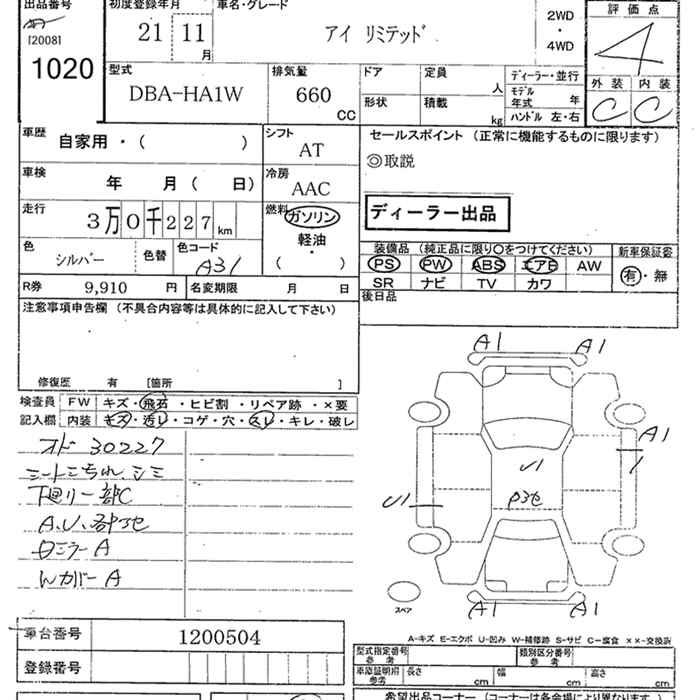 出品番号
[2008]
1020
初度登録年月
21 11
月
車名・グレード
アイ リミテッド
2WD
・
4WD
評価点
4
外装 内装
C C
型式
DBA-HA1W
排気量
660
CC
ドア 定員
人
形状 積載
kg
ディーラー・並行
モデル
年式 年
ハンドル 左・右
車歴 自家用・( )
シフト
AT
車検 年 月( 日)
冷房
AAC
走行 3万0千227km
燃料 ガソリン
軽油
・
( )
色 シルバー
色替
色コード A31
R券 9,910 円
名変期限 月 日
セールスポイント (正常に機能するものに限ります)
◎取説
ディーラー出品
装備品 (純正品に限り○をつけてください)
PS PW ABS エアB AW
SR ナビ TV カワ
新車保証書
有・無
後日品
注意事項申告欄 (不具合内容等は具体的に記入して下さい)
修復歴 有 [箇所 ]
検査員
記入欄
FW キズ・飛石・ヒビ割・リペア跡・×要
内装 キズ・汚レ・コゲ・穴・スレ・キレ・破レ
オド 30227
シートこちれ、シミ
下廻り一部C
A.U.各部
ロミラーA
WカバーA
A1 A1
A1
U1
U1
A1 A1
スペア
A-キズ E-エクボ U-凹み W-補修跡 S-サビ C-腐食 ××-交換済
車台番号 1200504
登録番号
型式指定番号
参考
類別区分番号
参考
車庫証明用
参考
長さ cm
幅 cm
高さ cm
希望出品コーナー (コーナーは各会場により異なります)